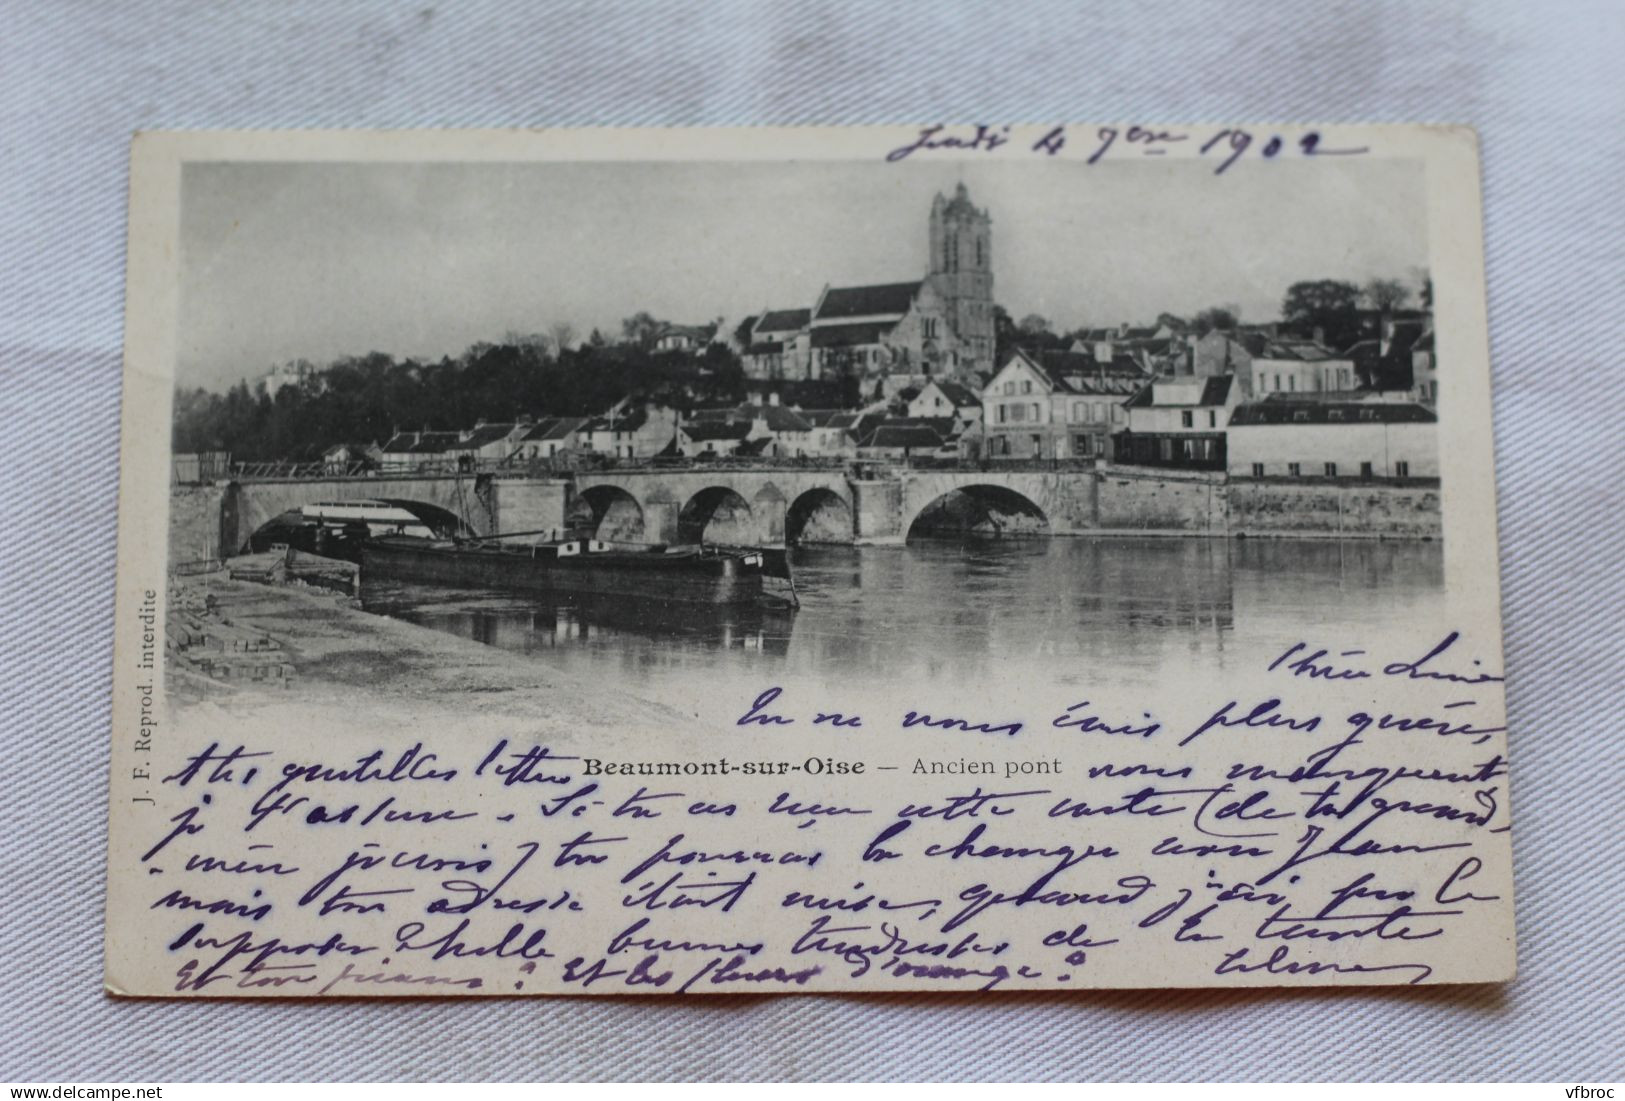 Jeudi 4 7bre 1902
Chère
Tu ne nous écris plus guère,
tes gentilles lettres
Beaumont-sur-Oise — Ancien pont
nous manquent,
je t'assure. Si tu as reçu cette carte (de ta grand
-mère je crois) tu pourras la changer avec Jean
mais ton adresse étant mise, quand j'ai pu le
supposer Mille bonnes tendresses de Ta tante
Et ton piano ? Et les fleurs d'oranger ?
J. F. Reprod. interdite
vfbroc